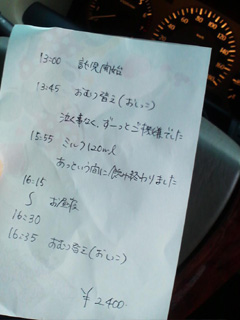 13:00 託児開始
13:45 おむつ替え(おしっこ)
泣く事なく、ずーっとご機嫌でした
15:55 ミルク120ml
あっという間に飲み終わりました
16:15
〜 お昼寝
16:30
16:35 おむつ替え(おしっこ)
¥2400-